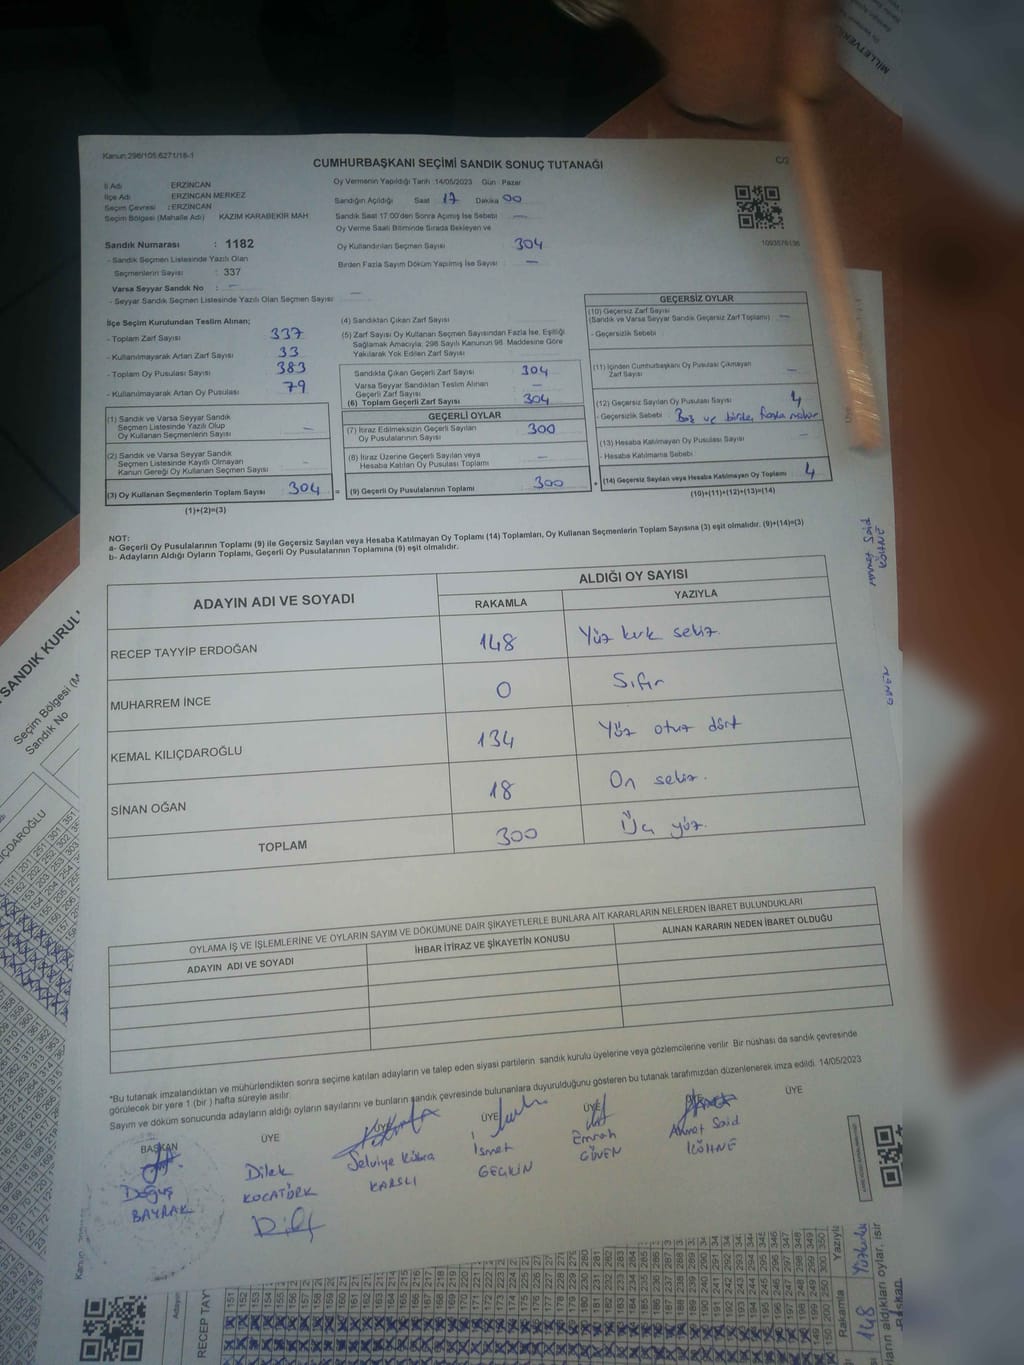 Kanun:298/105;6271/18-1
CUMHURBAŞKANI SEÇİMİ SANDIK SONUÇ TUTANAĞI
İl Adı ERZİNCAN
İlçe Adı ERZİNCAN MERKEZ
Seçim Çevresi : ERZİNCAN
Seçim Bölgesi (Mahalle Adı) KAZIM KARABEKİR MAH
Sandık Numarası : 1182
- Sandık Seçmen Listesinde Yazılı Olan
Seçmenlerin Sayısı : 337
Varsa Seyyar Sandık No : -
- Seyyar Sandık Seçmen Listesinde Yazılı Olan Seçmen Sayısı : -
Oy Vermenin Yapıldığı Tarih :14/05/2023 Gün : Pazar
Sandığın Açıldığı Saat 17 Dakika 00
Sandık Saat 17:00'den Sonra Açılmış İse Sebebi -
Oy Verme Saati Bitiminde Sırada Bekleyen ve
Oy Kullandırılan Seçmen Sayısı 304
Birden Fazla Sayım Döküm Yapılmış İse Sayısı -
1093576136
İlçe Seçim Kurulundan Teslim Alınan;
- Toplam Zarf Sayısı 337
- Kullanılmayarak Artan Zarf Sayısı 33
- Toplam Oy Pusulası Sayısı 383
- Kullanılmayarak Artan Oy Pusulası 79
(1) Sandık ve Varsa Seyyar Sandık
Seçmen Listesinde Yazılı Olup
Oy Kullanan Seçmenlerin Sayısı -
(2) Sandık ve Varsa Seyyar Sandık
Seçmen Listesinde Kayıtlı Olmayan
Kanun Gereği Oy Kullanan Seçmen Sayısı -
(3) Oy Kullanan Seçmenlerin Toplam Sayısı 304 =
(1)+(2)=(3)
(4) Sandıktan Çıkan Zarf Sayısı
(5) Zarf Sayısı Oy Kullanan Seçmen Sayısından Fazla İse, Eşitliği
Sağlamak Amacıyla; 298 Sayılı Kanunun 98. Maddesine Göre
Yakılarak Yok Edilen Zarf Sayısı
Sandıkta Çıkan Geçerli Zarf Sayısı 304
Varsa Seyyar Sandıktan Teslim Alınan
Geçerli Zarf Sayısı -
(6) Toplam Geçerli Zarf Sayısı 304
GEÇERLİ OYLAR
(7) İtiraz Edilmeksizin Geçerli Sayılan
Oy Pusulalarının Sayısı 300
(8) İtiraz Üzerine Geçerli Sayılan veya
Hesaba Katılan Oy Pusulası Toplamı -
(9) Geçerli Oy Pusulalarının Toplamı 300 +
GEÇERSİZ OYLAR
(10) Geçersiz Zarf Sayısı
(Sandık ve Varsa Seyyar Sandık Geçersiz Zarf Toplamı) : -
- Geçersizlik Sebebi :
(11) İçinden Cumhurbaşkanı Oy Pusulası Çıkmayan
Zarf Sayısı -
(12) Geçersiz Sayılan Oy Pusulası Sayısı 4
- Geçersizlik Sebebi : Boş ve birden fazla mühür
(13) Hesaba Katılmayan Oy Pusulası Sayısı -
- Hesaba Katılmama Sebebi :
(14) Geçersiz Sayılan veya Hesaba Katılmayan Oy Toplamı 4
(10)+(11)+(12)+(13)=(14)
NOT:
a- Geçerli Oy Pusulalarının Toplamı (9) ile Geçersiz Sayılan veya Hesaba Katılmayan Oy Toplamı (14) Toplamları, Oy Kullanan Seçmenlerin Toplam Sayısına (3) eşit olmalıdır. (9)+(14)=(3)
b- Adayların Aldığı Oyların Toplamı, Geçerli Oy Pusulalarının Toplamına (9) eşit olmalıdır.
ADAYIN ADI VE SOYADI ALDIĞI OY SAYISI
RAKAMLA YAZIYLA
RECEP TAYYİP ERDOĞAN 148 Yüz kırk sekiz.
MUHARREM İNCE 0 Sıfır
KEMAL KILIÇDAROĞLU 134 Yüz otuz dört
SİNAN OĞAN 18 On sekiz.
TOPLAM 300 Üç yüz.
OYLAMA İŞ VE İŞLEMLERİNE VE OYLARIN SAYIM VE DÖKÜMÜNE DAİR ŞİKAYETLERLE BUNLARA AİT KARARLARIN NELERDEN İBARET BULUNDUKLARI
ADAYIN ADI VE SOYADI İHBAR İTİRAZ VE ŞİKAYETİN KONUSU ALINAN KARARIN NEDEN İBARET OLDUĞU
*Bu tutanak imzalandıktan ve mühürlendikten sonra seçime katılan adayların ve talep eden siyasi partilerin sandık kurulu üyelerine veya gözlemcilerine verilir. Bir nüshası da sandık çevresinde
görülecek bir yere 1 (bir) hafta süreyle asılır.
Sayım ve döküm sonucunda adayların aldığı oyların sayılarını ve bunların sandık çevresinde bulunanlara duyurulduğunu gösteren bu tutanak tarafımızdan düzenlenerek imza edildi. 14/05/2023
BAŞKAN ÜYE ÜYE ÜYE ÜYE ÜYE ÜYE
Doğuş BAYRAK
Dilek KOCATÜRK
Selviye Kübra KARSLI
İsmet GEÇKİN
Emrah GÜVEN
Ahmet Said KÖHNE
Ahmet Said KÖHNE
GÜVEN
SANDIK KURUL
Seçim Bölgesi (M
Sandık No
RECEP TAY
Rakamla
Yazıyla
148
MİLLETVEKİ